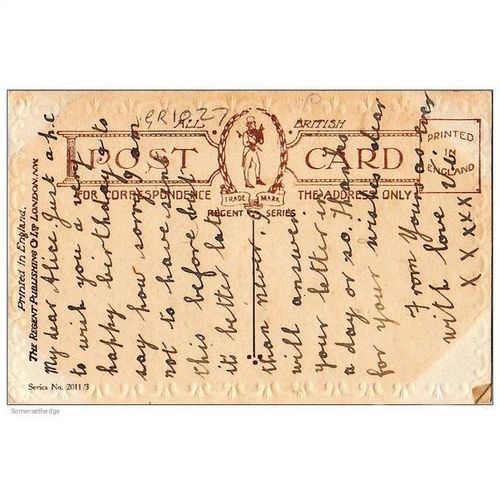 GR1027
ALL BRITISH
POST CARD
FOR CORRESPONDENCE THE ADDRESS ONLY
TRADE MARK
REGENT SERIES
PRINTED
IN
ENGLAND
Printed in England.
THE REGENT PUBLISHING Co Ltd LONDON. N.W.
My dear Alice Just a p.c
to wish you a very
happy birthday & to
say how sorry I am
not to have sent
this before but
its better late
than never. I
will answer
your letter in
a day or so. Thanks
for your wishes dear
From Yours as ever
with love Vi.
X X X X X
Series No. 2011/3
Somersethedge